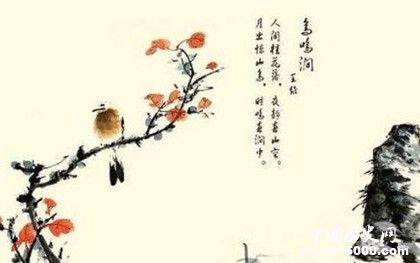 鸟鸣涧
王维
人闲桂花落，夜静春山空。
月出惊山鸟，时鸣春涧中。
中国历史网
5000.com